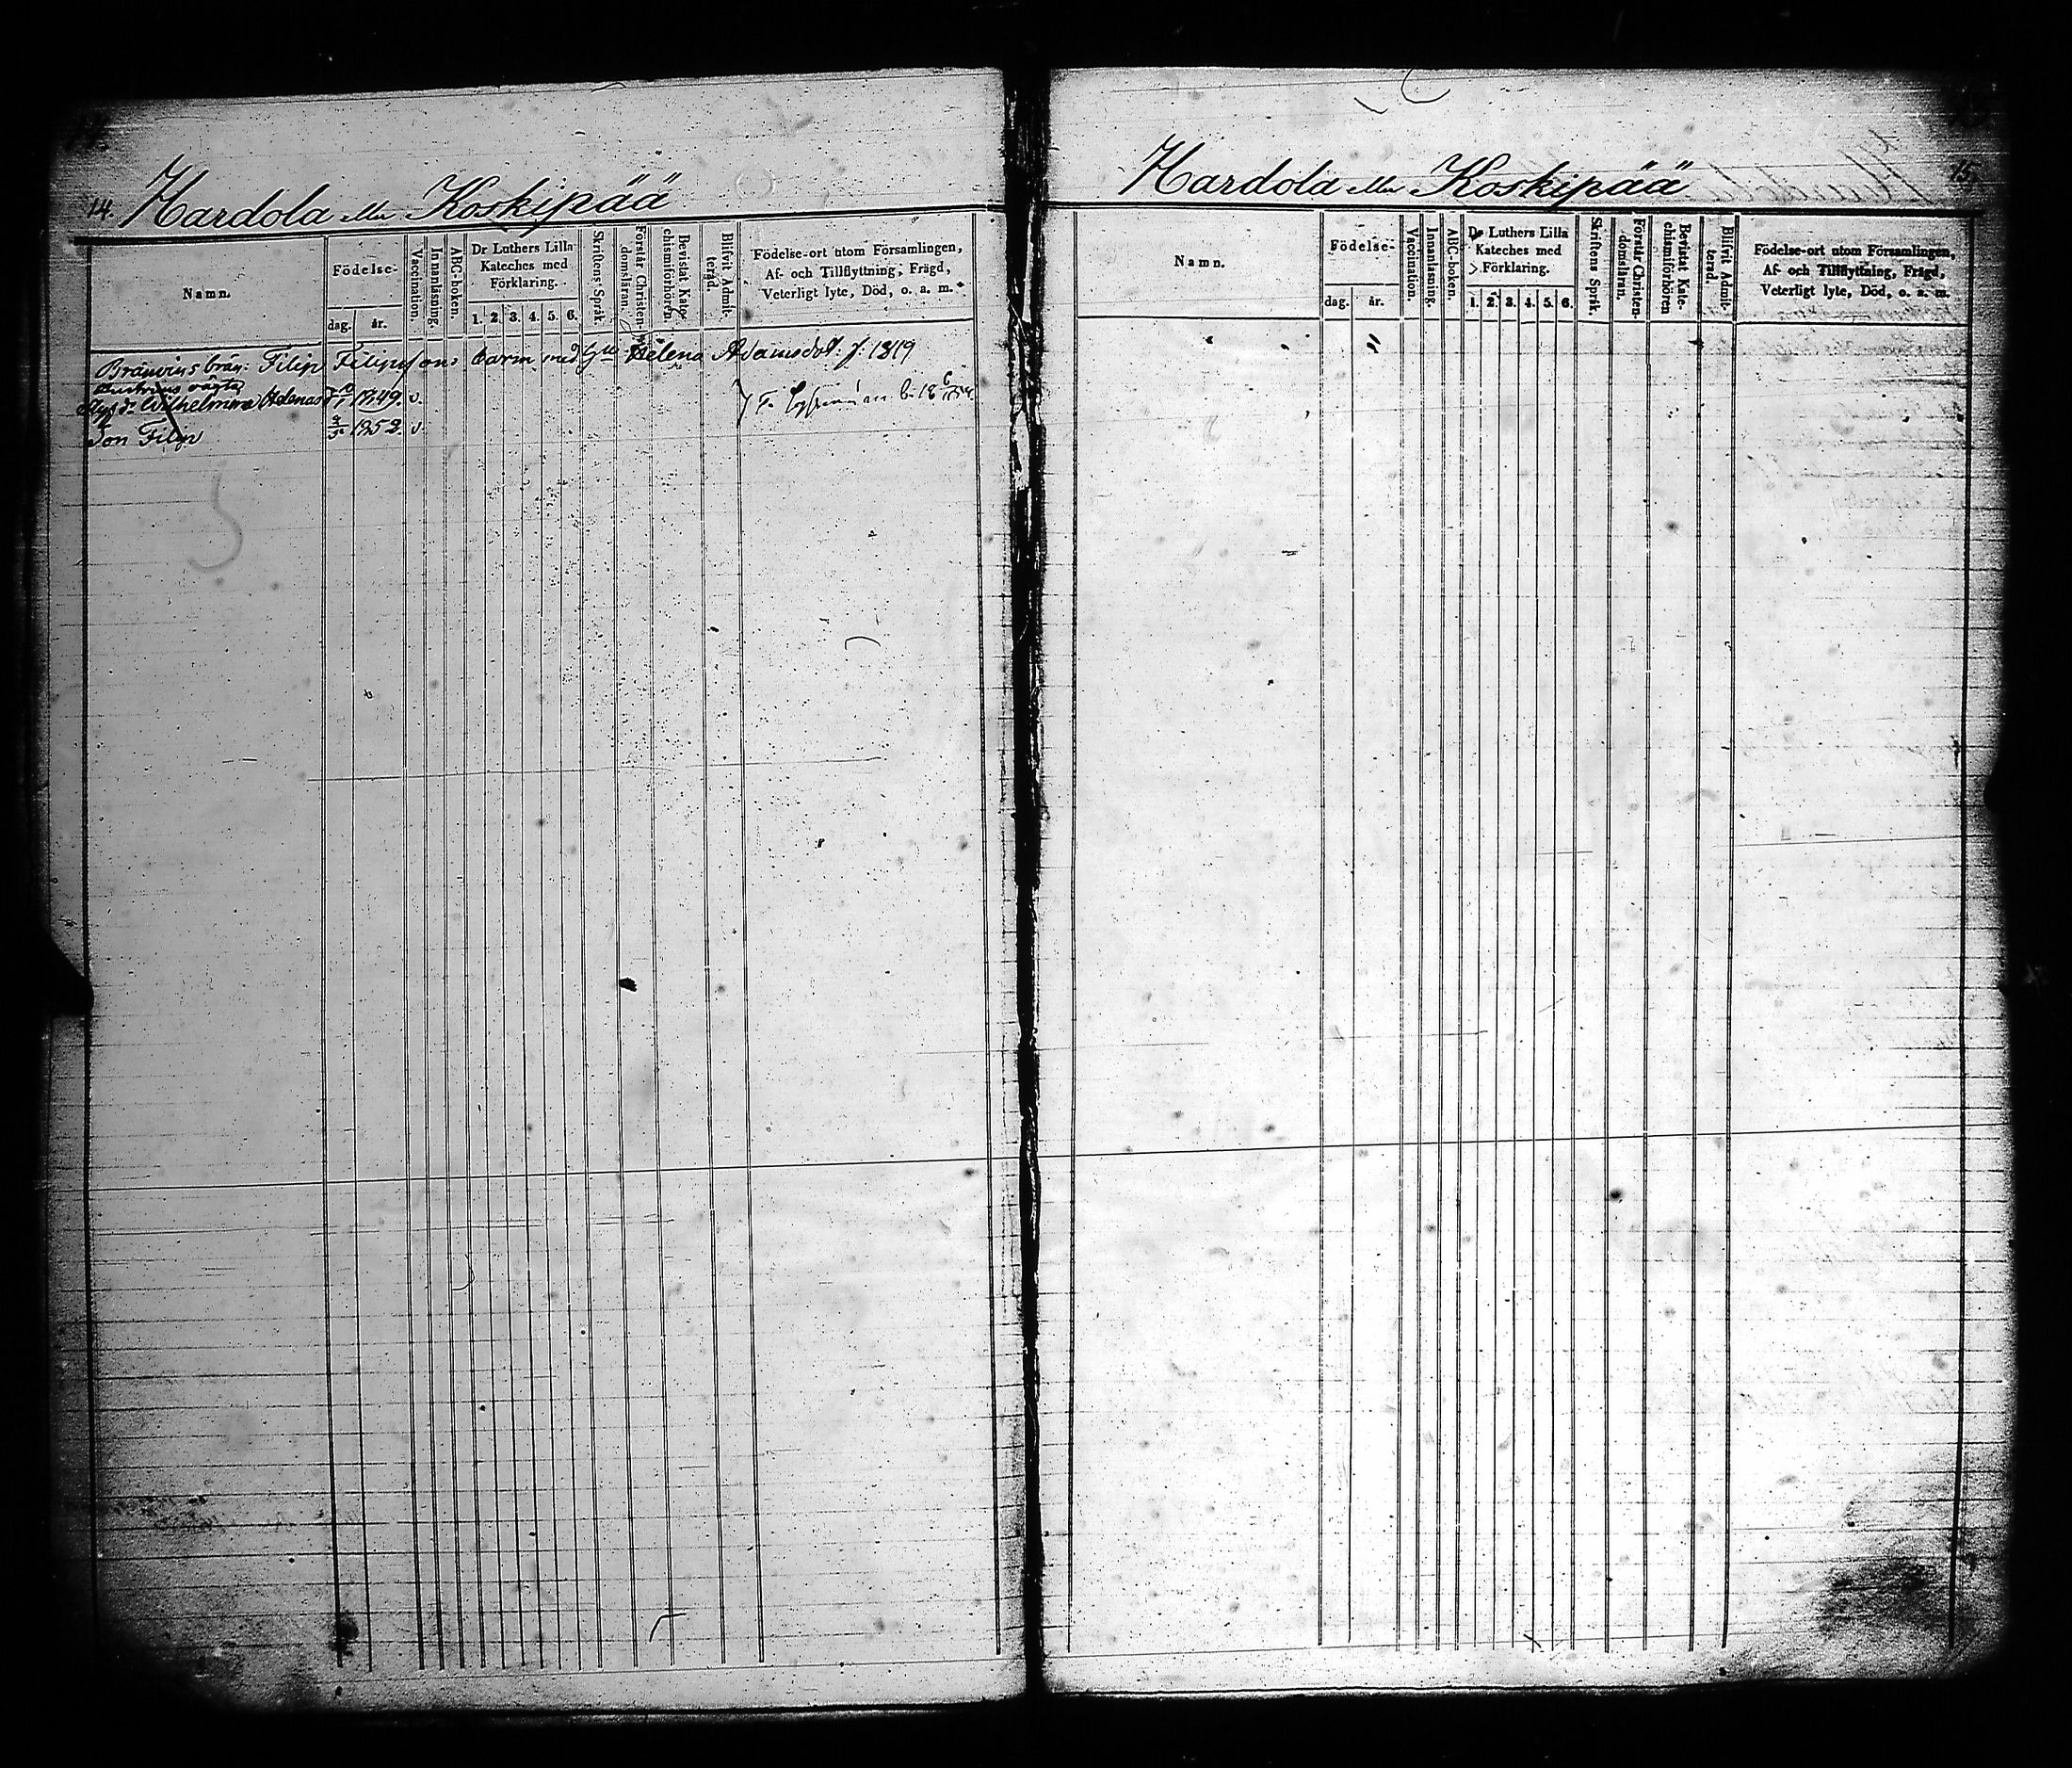 14. Hardola eller Koskipää
Namn.
Födelse-
dag. år.
Vaccination.
Innanläsning.
ABC-boken.
Dr Luthers Lilla
Kateches med
Förklaring.
1. 2. 3. 4. 5. 6.
Skriftens Språk.
Förstår Christen-
domsläran.
Bevistat Kate-
chismiförhören.
Blifvit Admit-
terad.
Födelse-ort utom Församlingen,
Af- och Tillflyttning, Frägd,
Veterligt lyte, Död, o. a. m.
Filip Filipssons barn med Helena Adamsdot: f: 1819
Wilhelmina 1849. v.
Son Filip 1852. v.
Hardola eller Koskipää 15.
Namn.
Födelse-
dag. år.
Vaccination.
Innanläsning.
ABC-boken.
Dr Luthers Lilla
Kateches med
Förklaring.
1. 2. 3. 4. 5. 6.
Skriftens Språk.
Förstår Christen-
domsläran.
Bevistat Kate-
chismiförhören
Blifvit Admit-
terad.
Födelse-ort utom Församlingen,
Af- och Tillflyttning, Frägd,
Veterligt lyte, Död, o. a. m.